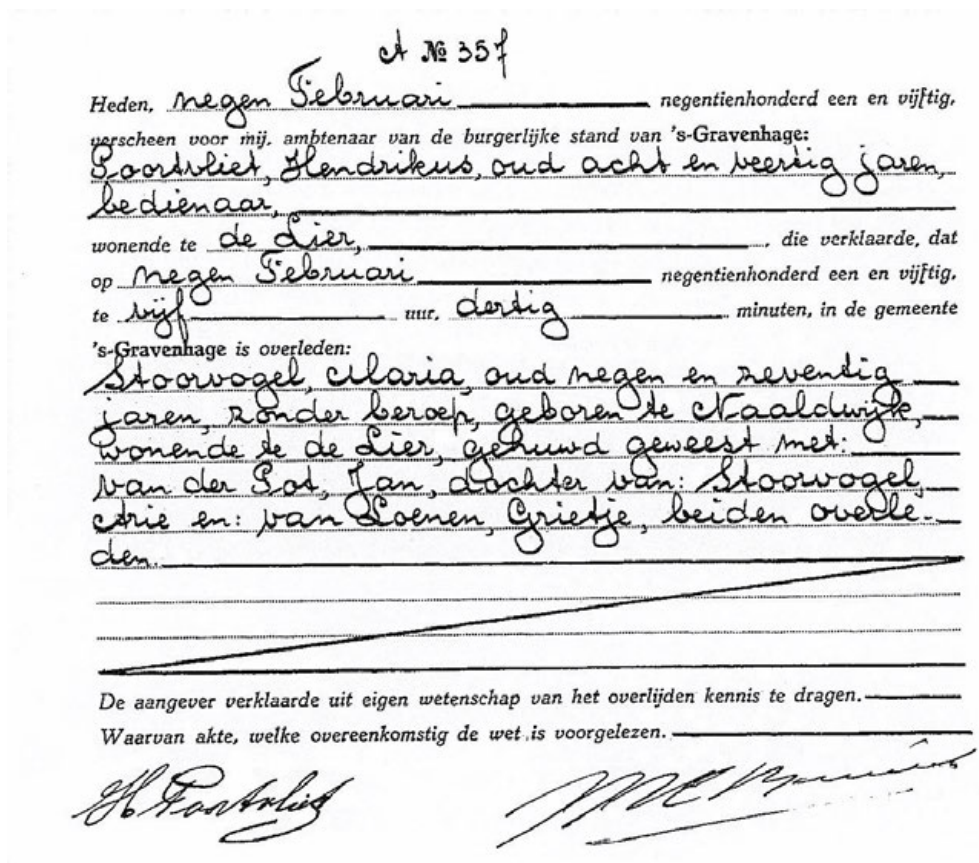 A № 357
Heden, negen Februari negentienhonderd een en vijftig,
verscheen voor mij, ambtenaar van de burgerlijke stand van 's-Gravenhage:
Poortvliet, Hendrikus, oud acht en veertig jaren,
bedienaar,
wonende te de Lier, die verklaarde, dat
op negen Februari negentienhonderd een en vijftig,
te vijf uur, dertig minuten, in de gemeente
's-Gravenhage is overleden:
Stoorvogel, Maria, oud negen en zeventig
jaren, zonder beroep, geboren te Naaldwijk,
wonende te de Lier, gehuwd geweest met:
van der Pot, Jan, dochter van: Stoorvogel,
Arie en: van Loenen, Grietje, beiden overle-
den.
De aangever verklaarde uit eigen wetenschap van het overlijden kennis te dragen.
Waarvan akte, welke overeenkomstig de wet is voorgelezen.
H Poortvliet